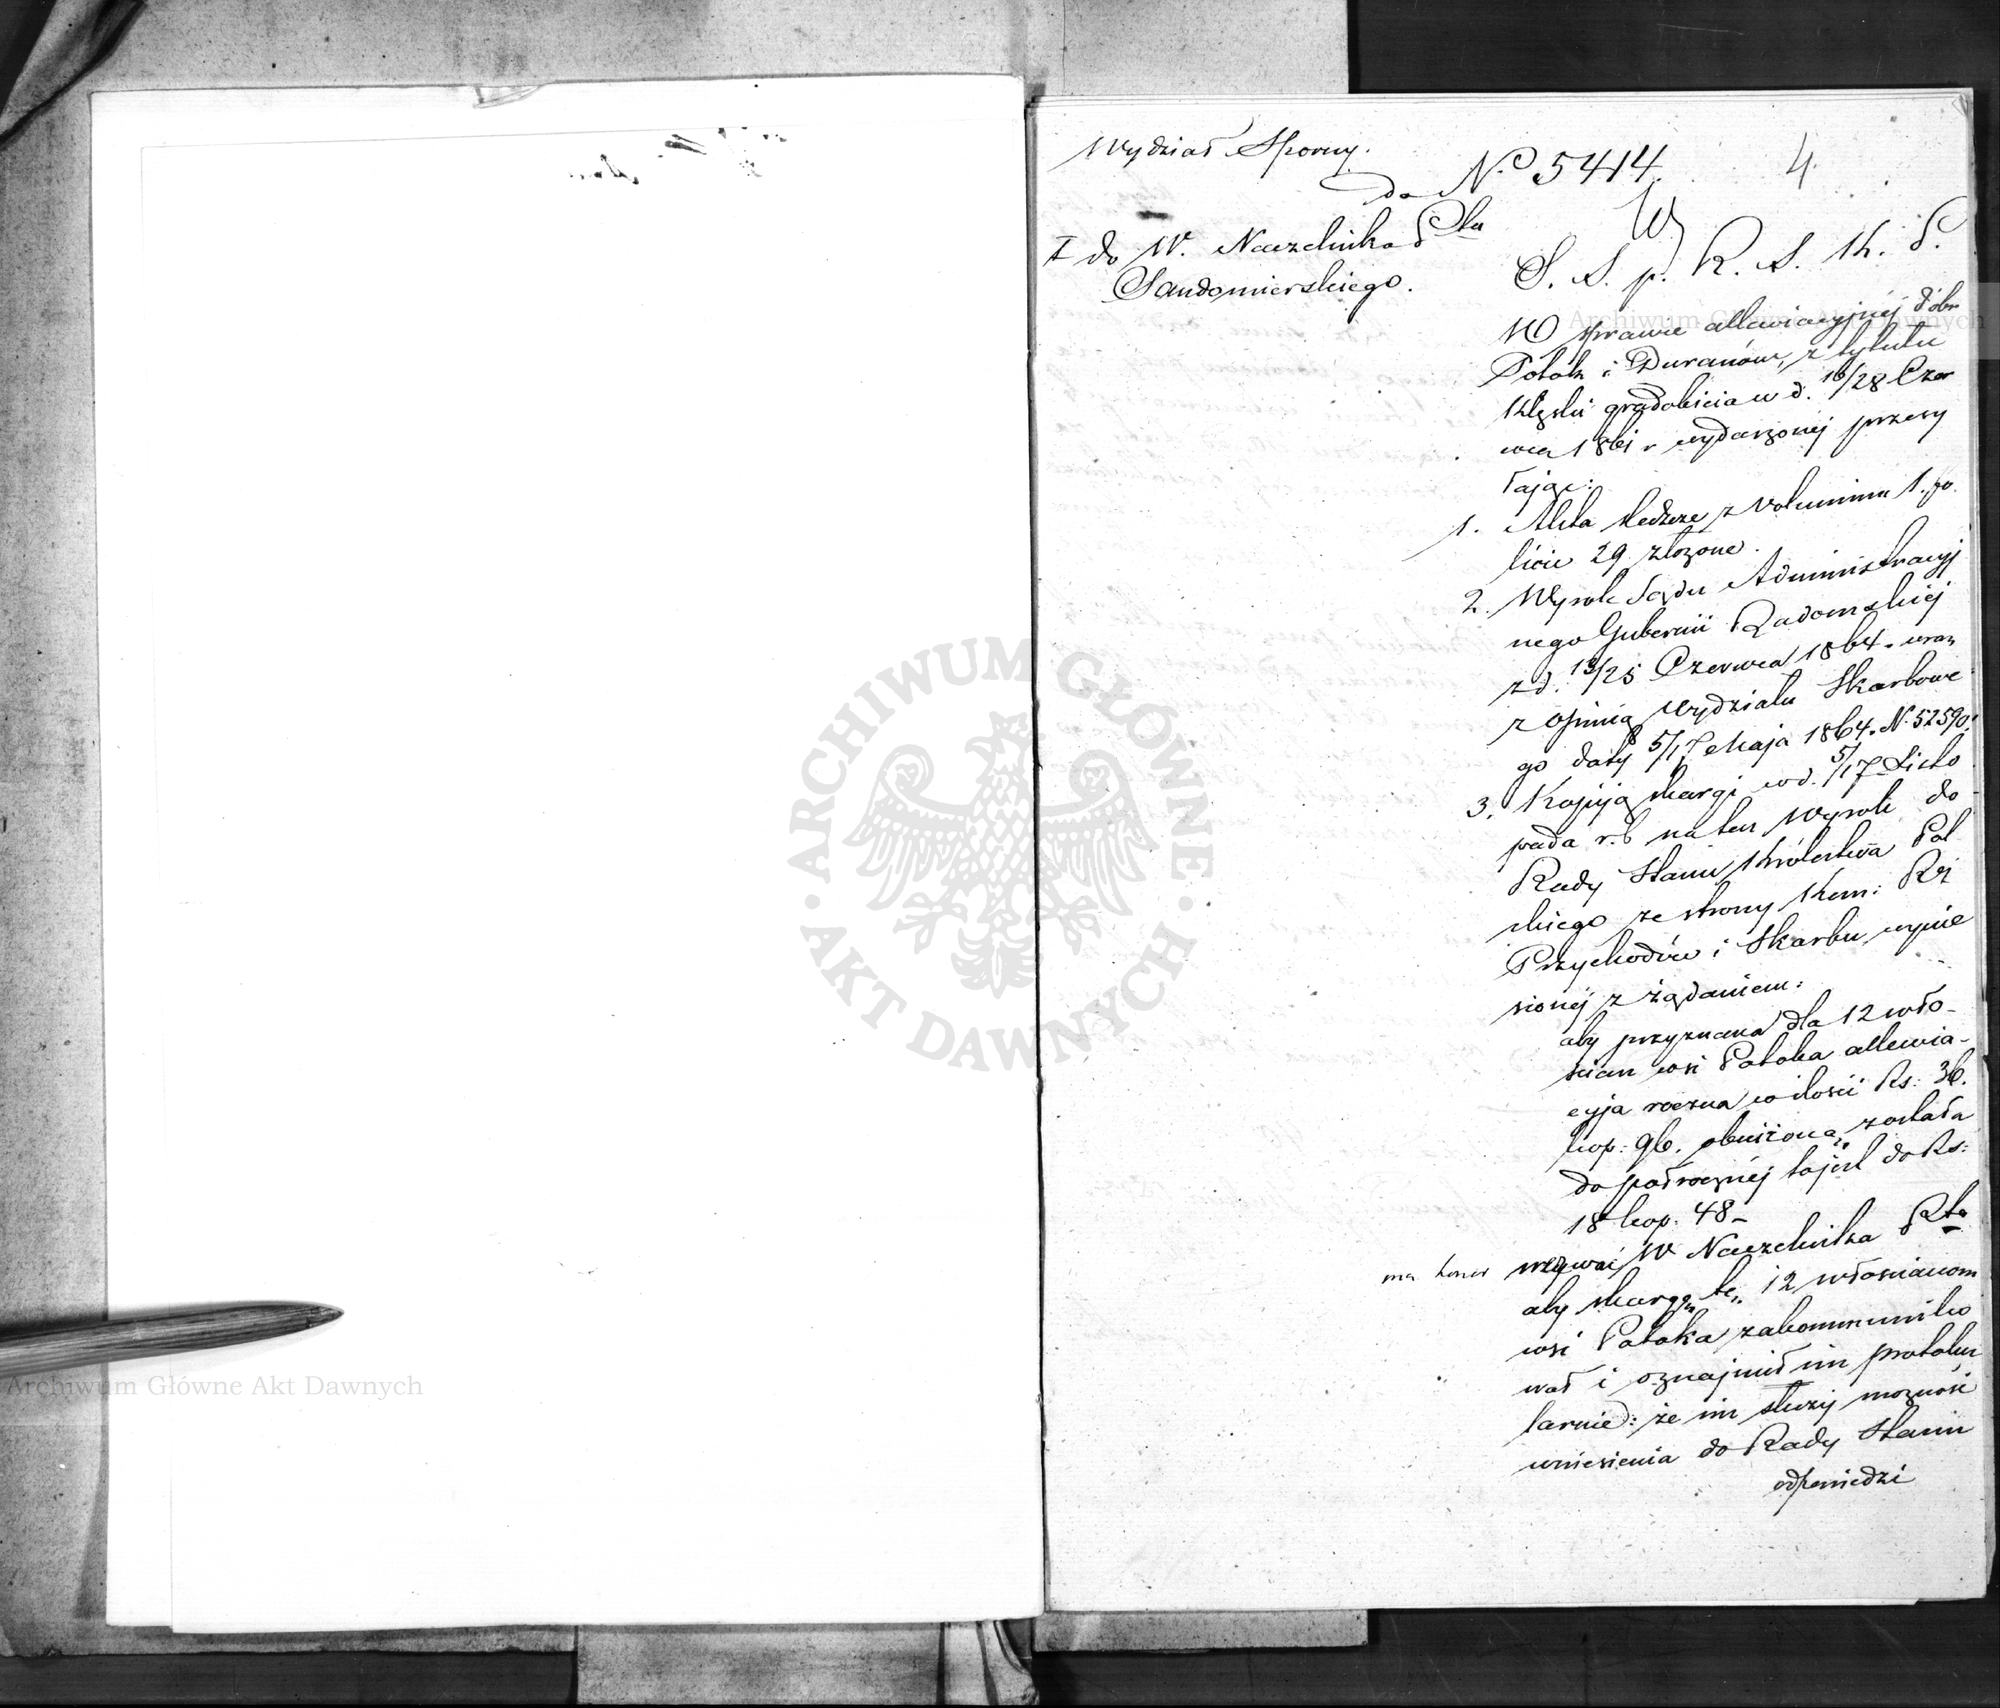 Wydział Sporny.
do No 5414.
4
I do W. Naczelnika Ptu
Sandomierskiego.
S. S. p. R. S. K. P.
W sprawie allewiacyjnéj dóbr
Potok i Duranów, z tytułu
klęski gradobicia w d. 16/28 Czer
wca 1861 r wydarzonéj przesy
łając:
1. Akta śledcze z voluminu 1. po
liście 29 złożone.
2. Wyrok Sądu Administracyj
nego Gubernii Radomskiéj
z d. 13/25 Czerwca 1864. wraz
z opinią Wydziału Skarbowe
go daty 5/17 Maja 1864. N. 52590.
3. Kopiją skargi w d. 5/17 Listo
pada r. b na ten Wyrok do
Rady Stanu Królestwa Pol
skiego ze strony Kom: Rz
Przychodów i Skarbu wynie
sionéj z żądaniem:
aby przyznana dla 12 wło-
ścian wsi Potoka allewia-
cyja roczna w ilości Rs: 36.
kop: 96. obniżoną została
do półrocznéj to jest do Rs:
18 kop. 48 -
ma honor wezwać W Naczelnika Ptu
aby skargę tę 12 włościanom
wsi Potoka zakommuniko
wał i oznajmił im protokul
larnie: że im służy możność
wniesienia do Rady Stanu
odpowiedzi
ARCHIWUM GŁÓWNE
AKT DAWNYCH
Archiwum Główne Akt Dawnych
Archiwum Główne Akt Dawnych